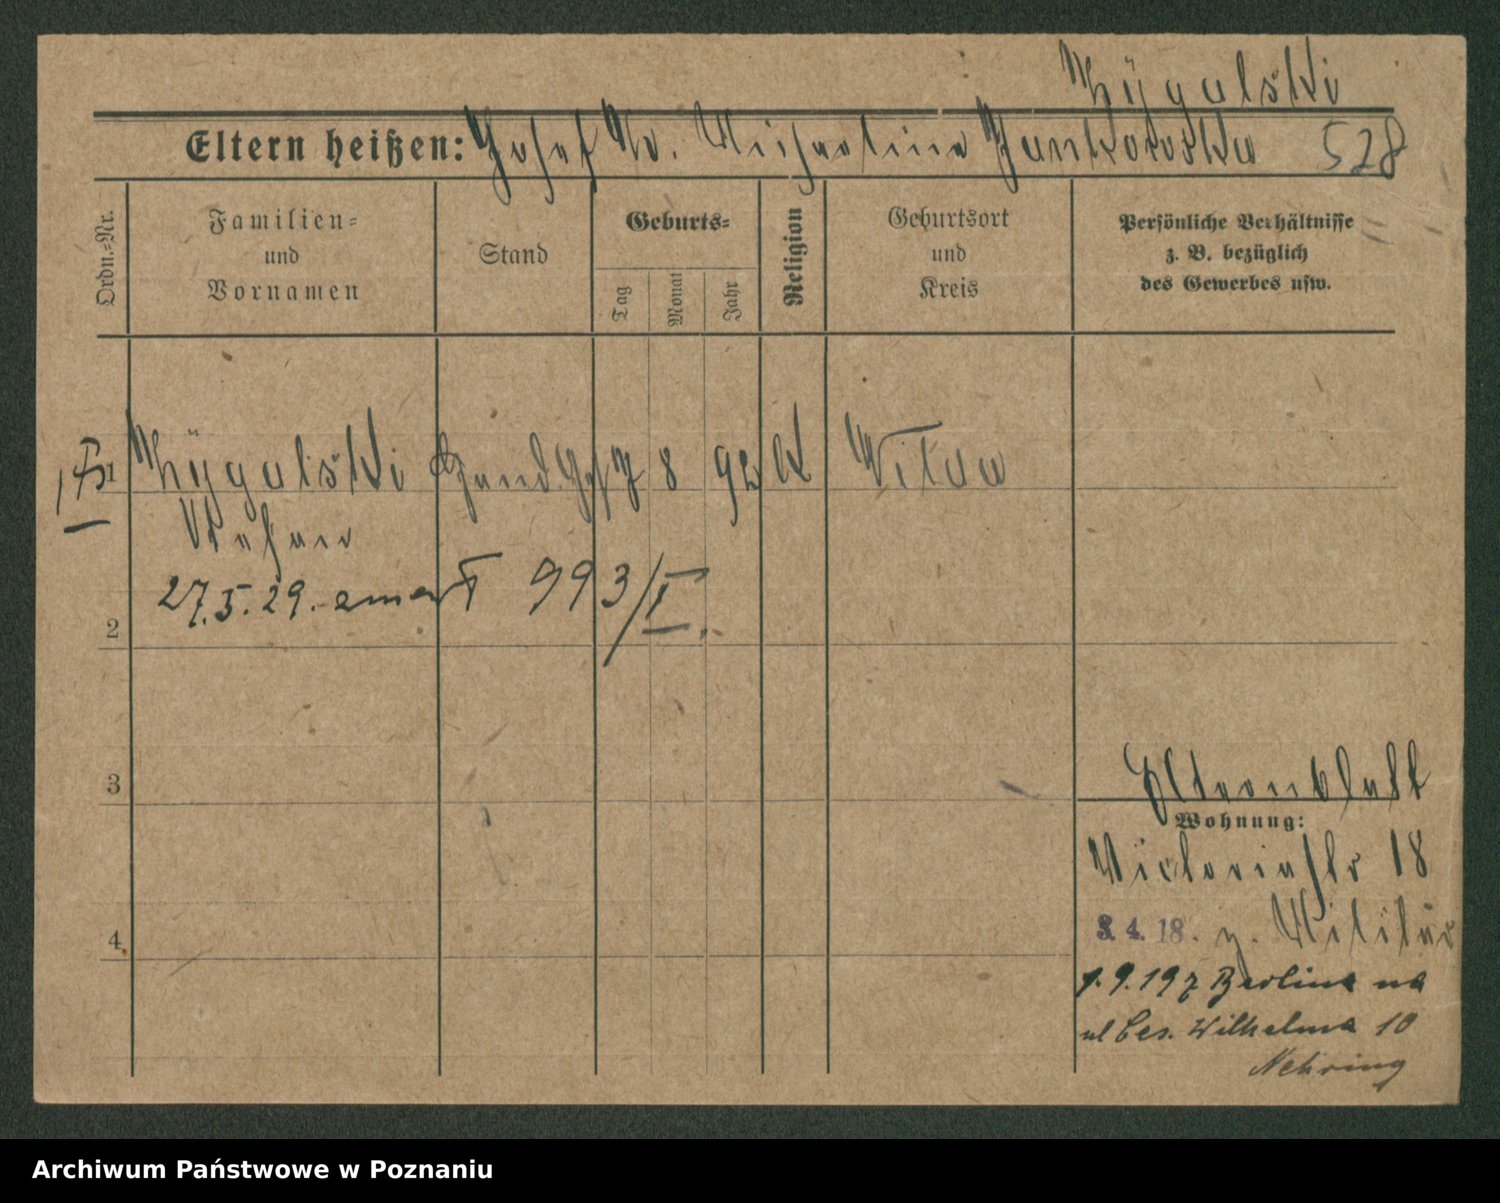 Zÿgalski
Eltern heißen: Josef u. Michaelina Jankowska 528
Ordn.-Nr.
Familien-
und
Vornamen
Stand
Geburts-
Tag
Monat
Jahr
Religion
Geburtsort
und
Kreis
Persönliche Verhältnisse
z. B. bezüglich
des Gewerbes usw.
1 Zÿgalski 7 8 92 K Wilda
Stefan
27.5.29. 993/I.
2
3
Elternblatt
Wohnung:
Victoriastr 18
3. 4. 18. z. Militär
4
1.9.19 z Berlina na
ul Ces. Wilhelma 10
Nehring
Archiwum Państwowe w Poznaniu